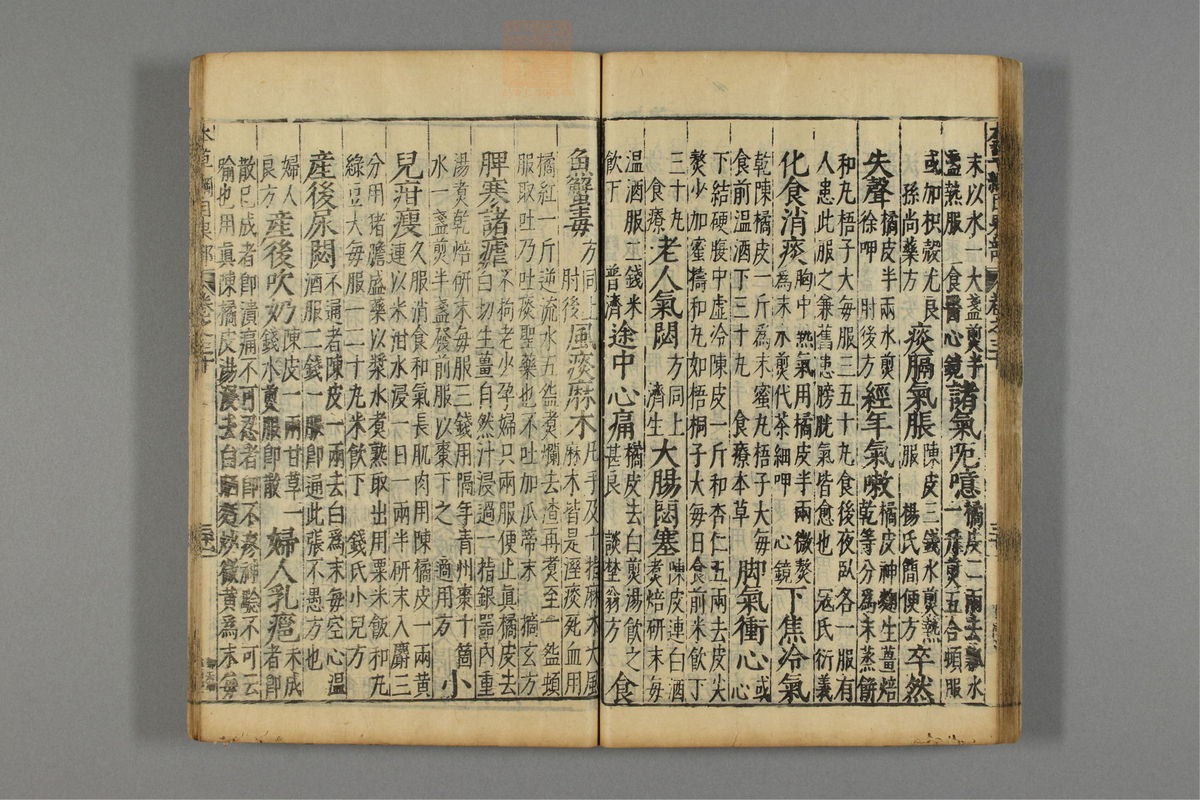 末以水一大盞煎半
盞熱服 食醫心鏡
諸氣呃噫
橘皮二兩去瓤水
一升煎五合頓服
或加枳殼尤良
孫尚藥方
痰膈氣脹
陳皮三錢水煎熱
服 楊氏簡便方
卒然
失聲
橘皮半兩水煎
徐呷 肘後方
經年氣嗽
橘皮神麴生薑焙
乾等分為末蒸餅
和丸梧子大每服三五十丸食後夜臥各一服有
人患此服之兼舊患膀胱氣皆愈也 寇氏衍義
化食消痰
胸中熱氣用橘皮半兩微熬
為末水煎代茶細呷 心鏡
下焦冷氣
乾陳橘皮一斤為末蜜丸梧子大每
食前溫酒下三十丸 食療本草
脚氣衝心
或
心
下結硬腹中虛冷陳皮一斤和杏仁五兩去皮尖
熬少加蜜擣和丸如梧桐子大每日食前米飲下
三十丸
食療
老人氣閟
方同上
濟生
大腸閟塞
陳皮連白酒
煮焙研末每
溫酒服二錢米
飲下 普濟
途中心痛
橘皮去白煎湯飲之
甚良 談埜翁方
食
魚蟹毒
方同上
肘後
風痰麻木
凡手及十指麻木大風
麻木皆是溼痰死血用
橘紅一斤逆流水五盌煮爛去渣再煮至一盌頓
服取吐乃吐痰聖藥也不吐加瓜蒂末 摘玄方
脾寒諸瘧
不拘老少孕婦只兩服便止真橘皮去
白切生薑自然汁浸過一指銀器內重
湯煮乾焙研末每服三錢用隔年青州棗十箇
水一盞煎半盞發前服以棗下之 適用方
小
兒疳瘦
久服消食和氣長肌肉用陳橘皮一兩黃
連以米泔水浸一日一兩半研末入麝三
分用猪膽盛藥以漿水煮熟取出用粟米飯和丸
綠豆大每服一二十丸米飲下 錢氏小兒方
產後尿閟
不通者陳皮一兩去白為末每空心溫
酒服二錢一服即通此張不愚方也
婦人
良方
產後吹奶
陳皮一兩甘草一
錢水煎服即散
婦人乳癰
未成
者即
散已成者即潰痛不可忍者即不疼神驗不可云
喻也用真陳橘皮湯浸去白晒麪炒微黃為末每
本草綱目果部 卷之三十